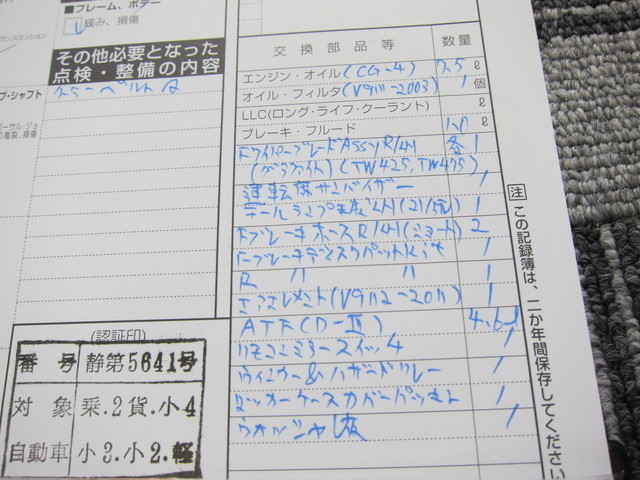 フレーム、ボデー
緩み、損傷
その他必要となった
点検・整備の内容
ミラーベルト
ブ・シャフト
交換部品等 数量
エンジン・オイル(CG-4) 7.5ℓ
オイル・フィルタ(V9111-2003) 1個
LLC(ロング・ライフ・クーラント) ℓ
ブレーキ・フルード 1.0ℓ
FワイパーブレードASSY R/H 各1
(グラファイト)(TW425,TW475)
運転席サンバイザー 1
テールランプ 1
FブレーキホースR/H 2
Fブレーキディスクパットkit 1
R 〃 〃 1
エアエレメント(V9112-2011) 1
ATF(D-Ⅲ) 4.6ℓ
リモコンミラースイッチ 1
ウィンカー&ハザードリレー 1
ロッカーケースカバーパッキン 1
ウォッシャ液 1
注 この記録簿は、二か年間保存してください
(認証印)
番号 静第5641号
対象 乗.2貨.小4
自動車 小3.小2.軽